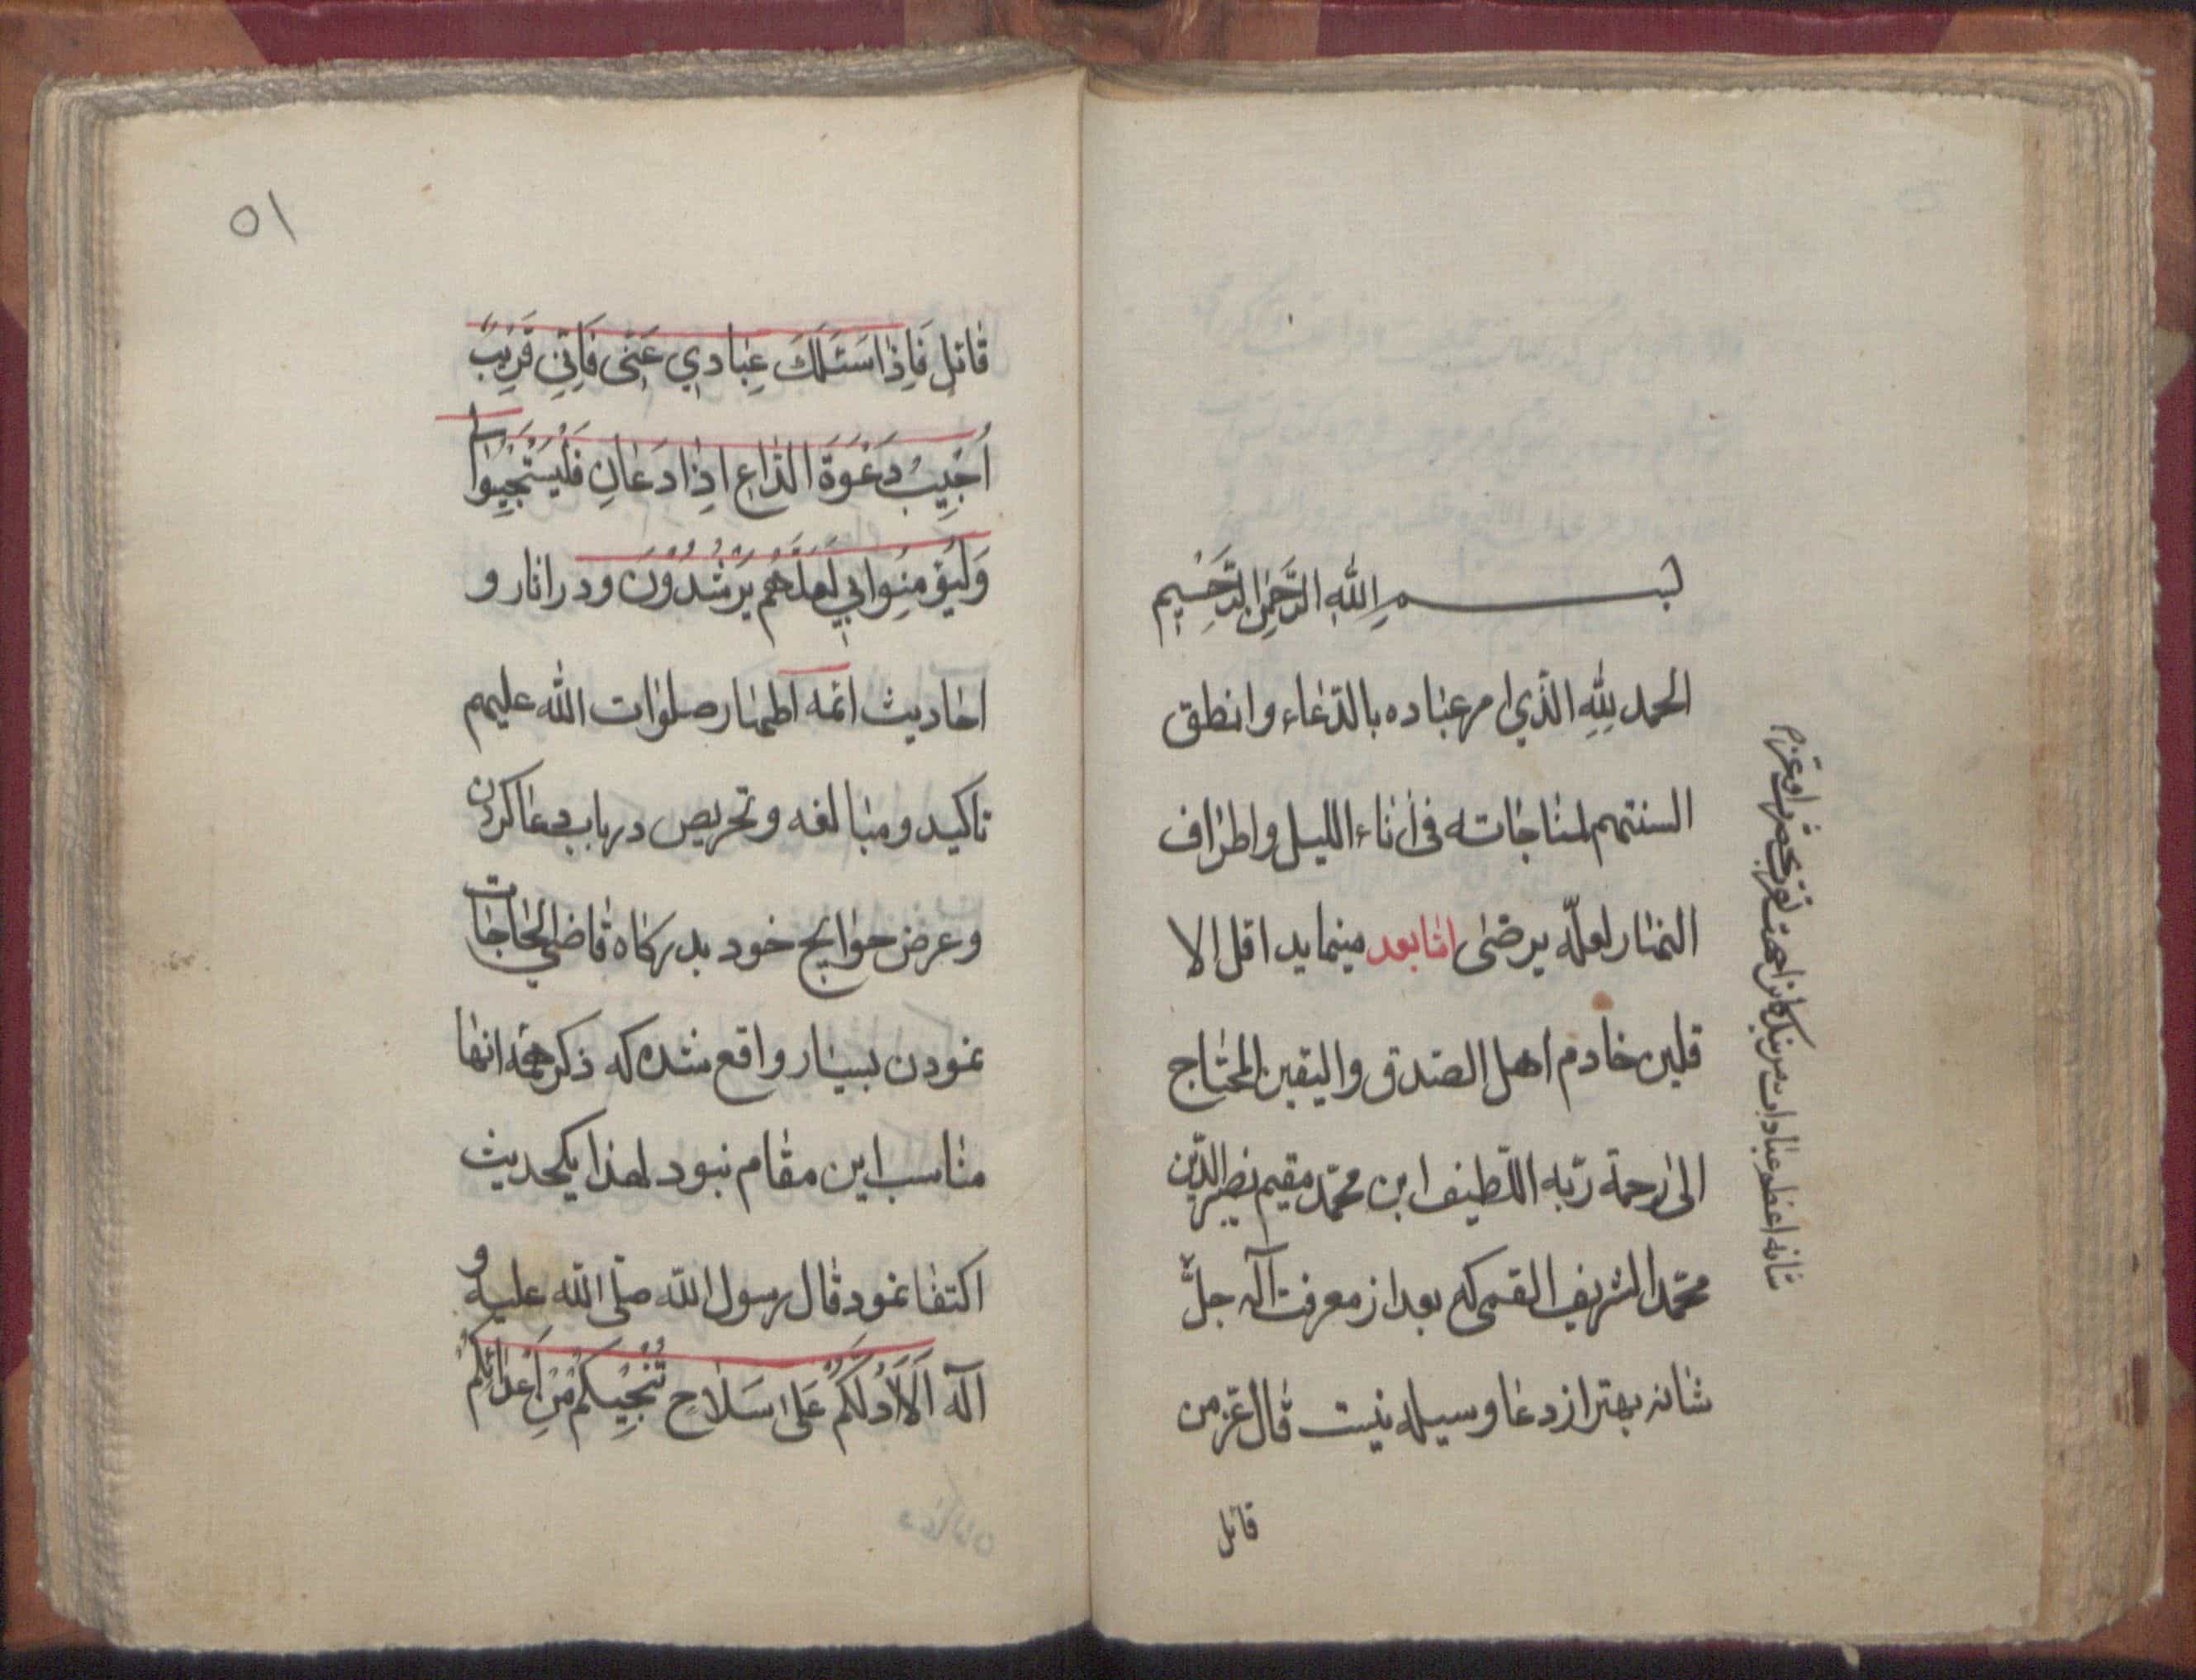 بسم الله الرَّحمٰنِ الرَّحِيم
الحمد لِلّهِ الَّذي امر عباده بالدّعاء وانطق
السنتهم لمناجاته فی اٰناء الليل واطراف
النهار لعلّه يرضىٰ امّا بعد مینماید اقل الا
قلین خادم اهل الصّدق واليقين المحتاج
الىٰ رحمة ربّه اللّطيف ابن محمّد مقیم نصیر الدّین
محمّد الشریف القمی که بعد از معرفت آله جلَّ
شانه بهتر از دعا وسیله نیست قال عزّ من
قائل
شانه اعظم عبادات بندکان از جهت تقرب بحضرت او عزم
٥١
قائل فَاِذٰا سَئَلَكَ عِبادي عَنّى فَاِنّي قَريبٌ
اُجيبُ دَعْوَةَ الدّاعِ اِذٰا دَعٰانِ فَلْيَسْتَجيبُوا لي
وَلْيُؤمِنُوا بي لَعَلَّهُم يَرْشُدُونَ ودر اثار و
احاديث ائمه اطهار صلوات الله عليهم
تاکید ومبالغه وتحریص در باب دعا کردن
وعرض حوایج خود بدرکاه قاضی الحاجات
نمودن بسیار واقع شده که ذکر همه انها
مناسب این مقام نبود لهذا بیکحدیث
اکتفا نمود قال رسول الله صلّى الله عليه و
اله اَلاٰ اَدُلُّكُمْ عَلىٰ سَلاحٍ تُنْجيكُمْ مِنْ اَعْدٰائِكُمْ